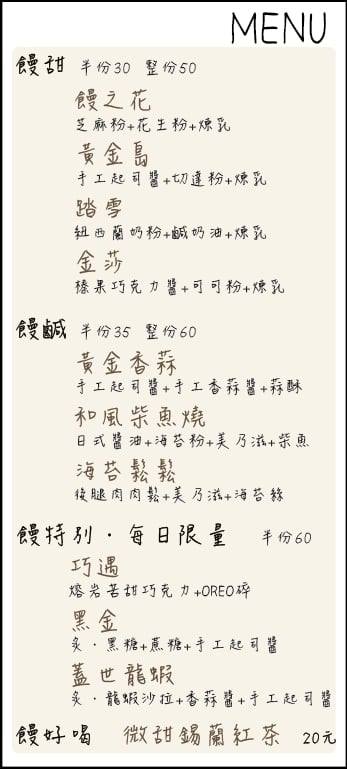 MENU
饅甜 半份30 整份50
饅之花
芝麻粉+花生粉+煉乳
黃金島
手工起司醬+切達粉+煉乳
踏雪
紐西蘭奶粉+鹹奶油+煉乳
金莎
榛果巧克力醬+可可粉+煉乳
饅鹹 半份35 整份60
黃金香蒜
手工起司醬+手工香蒜醬+蒜酥
和風柴魚燒
日式醬油+海苔粉+美乃滋+柴魚
海苔鬆鬆
後腿肉肉鬆+美乃滋+海苔絲
饅特別·每日限量 半份60
巧遇
熔岩苦甜巧克力+OREO碎
黑金
炙·黑糖+蔗糖+手工起司醬
蓋世龍蝦
炙·龍蝦沙拉+香蒜醬+手工起司醬
饅好喝 微甜錫蘭紅茶 20元